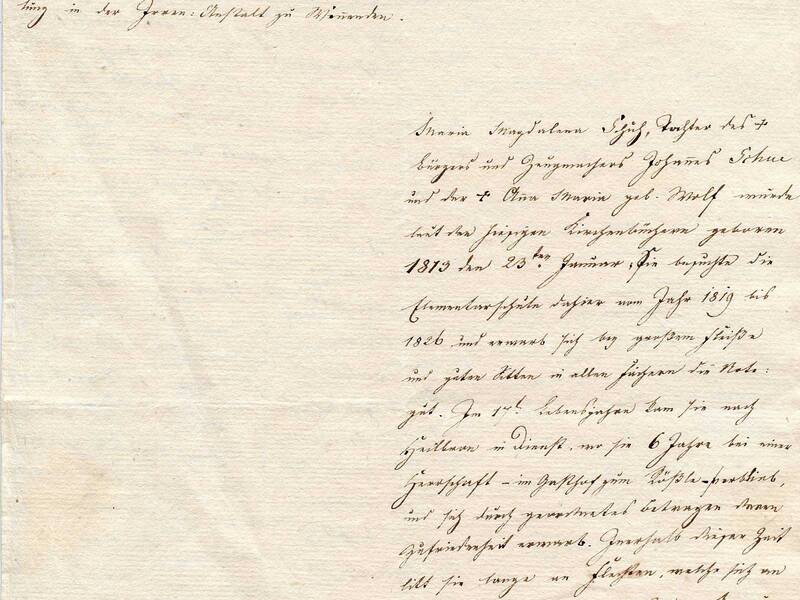 tung in der Irren-Anstalt zu Winnenden.
Maria Magdalena Schuh, Tochter des +
Bürgers und Zeugmachers Johannes Schue
und der + Anna Maria geb. Wolf wurde
laut der hiesigen Kirchenbüchern geboren
1813 den 23ten Januar, Sie besuchte die
Elementarschule dahier vom Jahr 1819 bis
1826 und erwarb sich bey großem Fleiße
und guten Sitten in allen Fächern die Note:
gut. Im 17t Lebensjahre kam sie nach
Heilbron in Dienst, wo sie 6 Jahre bei einer
Herrschaft - im Gasthof zum Rößle - verblieb,
und sich durch geordnetes Betragen deren
Zufriedenheit erwarb. Inerhalb dieser Zeit
litt sie lange an Flechten, welche sich an